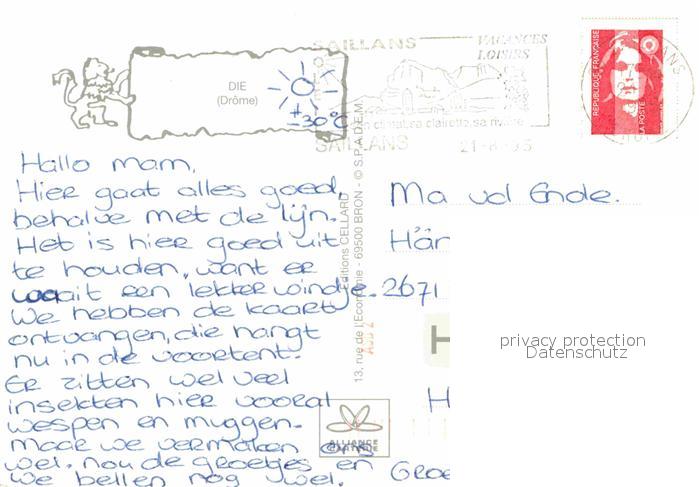 SAILLANS
VACANCES
LOISIRS
DIE
(Drôme)
± 30°C
son climat, sa clairette, sa rivière
SAILLANS
21-8-95
REPUBLIQUE FRANÇAISE
LA POSTE
Hallo mam,
Hier gaat alles goed,
behalve met de lijn.
Het is hier goed uit
te houden, want er
waait een lekker windje.
We hebben de kaart
ontvangen, die hangt
nu in de voortent.
Er zitten wel veel
insekten hier vooral
wespen en muggen.
Maar we vermaken ons
wel. nou de groetjes en
we bellen nog wel.
Editions CELLARD
13, rue de l'Economie - 69500 BRON - © S.P.A.D.E.M.
Ma vd Ende.
Här
2671
H
H
GROE
privacy protection
Datenschutz